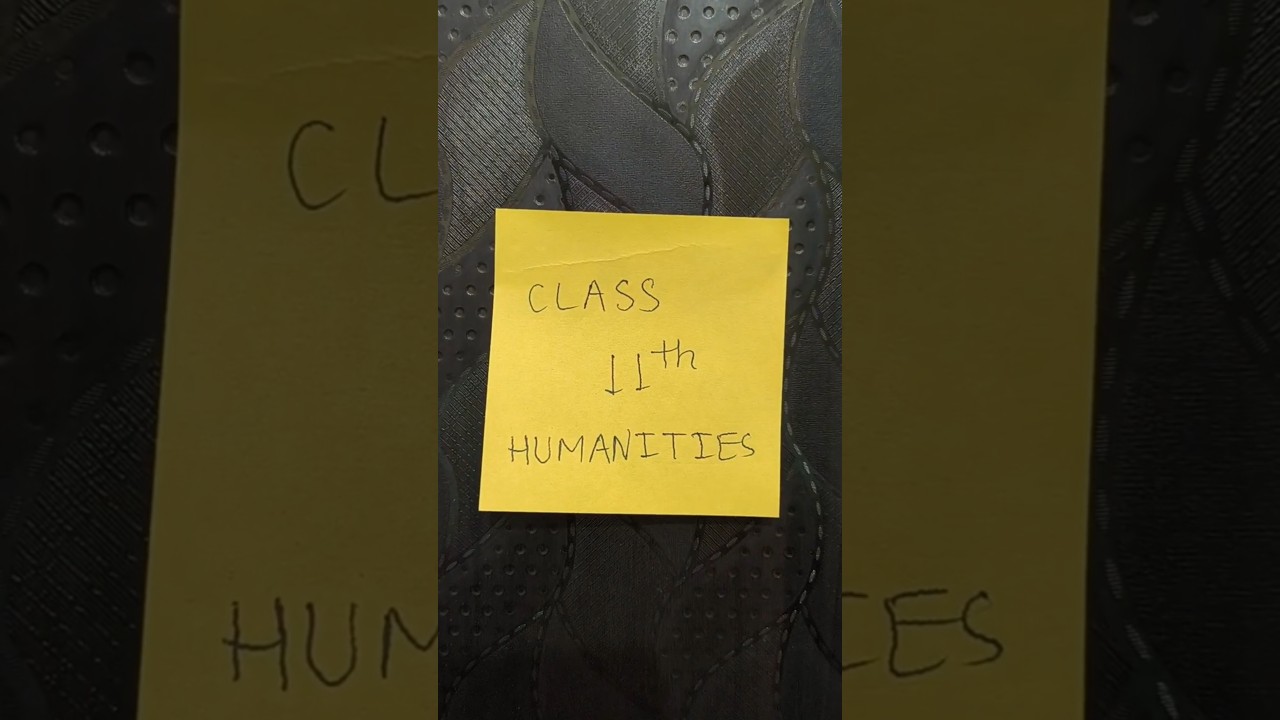 CLASS
11th
HUMANITIES